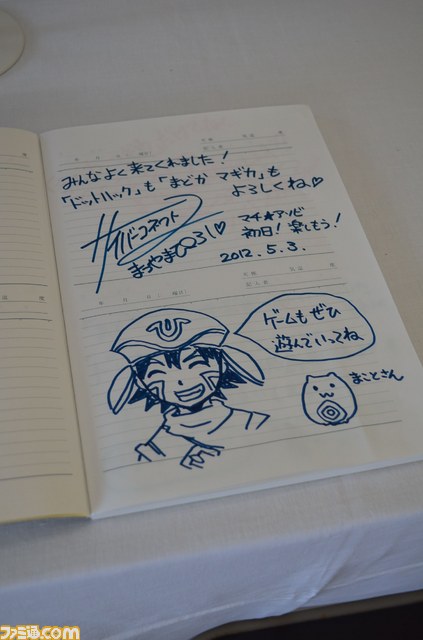 みんなよく来てくれました!
「ドットハック」も「まどかマギカ」も
よろしくね♡
サイバーコネクト2
まつやまひろし♡
マチ★アソビ
初日!楽しもう!
2012.5.3.
ゲームもぜひ
遊んでいってね
まことさん
ファミ通.com